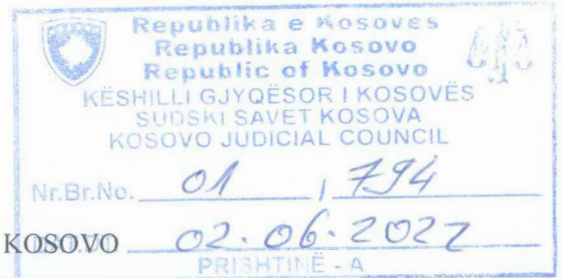 Republika e Kosovës
Republika Kosovo
Republic of Kosovo
KËSHILLI GJYQËSOR I KOSOVËS
SUDSKI SAVET KOSOVA
KOSOVO JUDICIAL COUNCIL
Nr.Br.No. 01 / 794
KOSOVO 02.06.2022
PRISHTINË - A